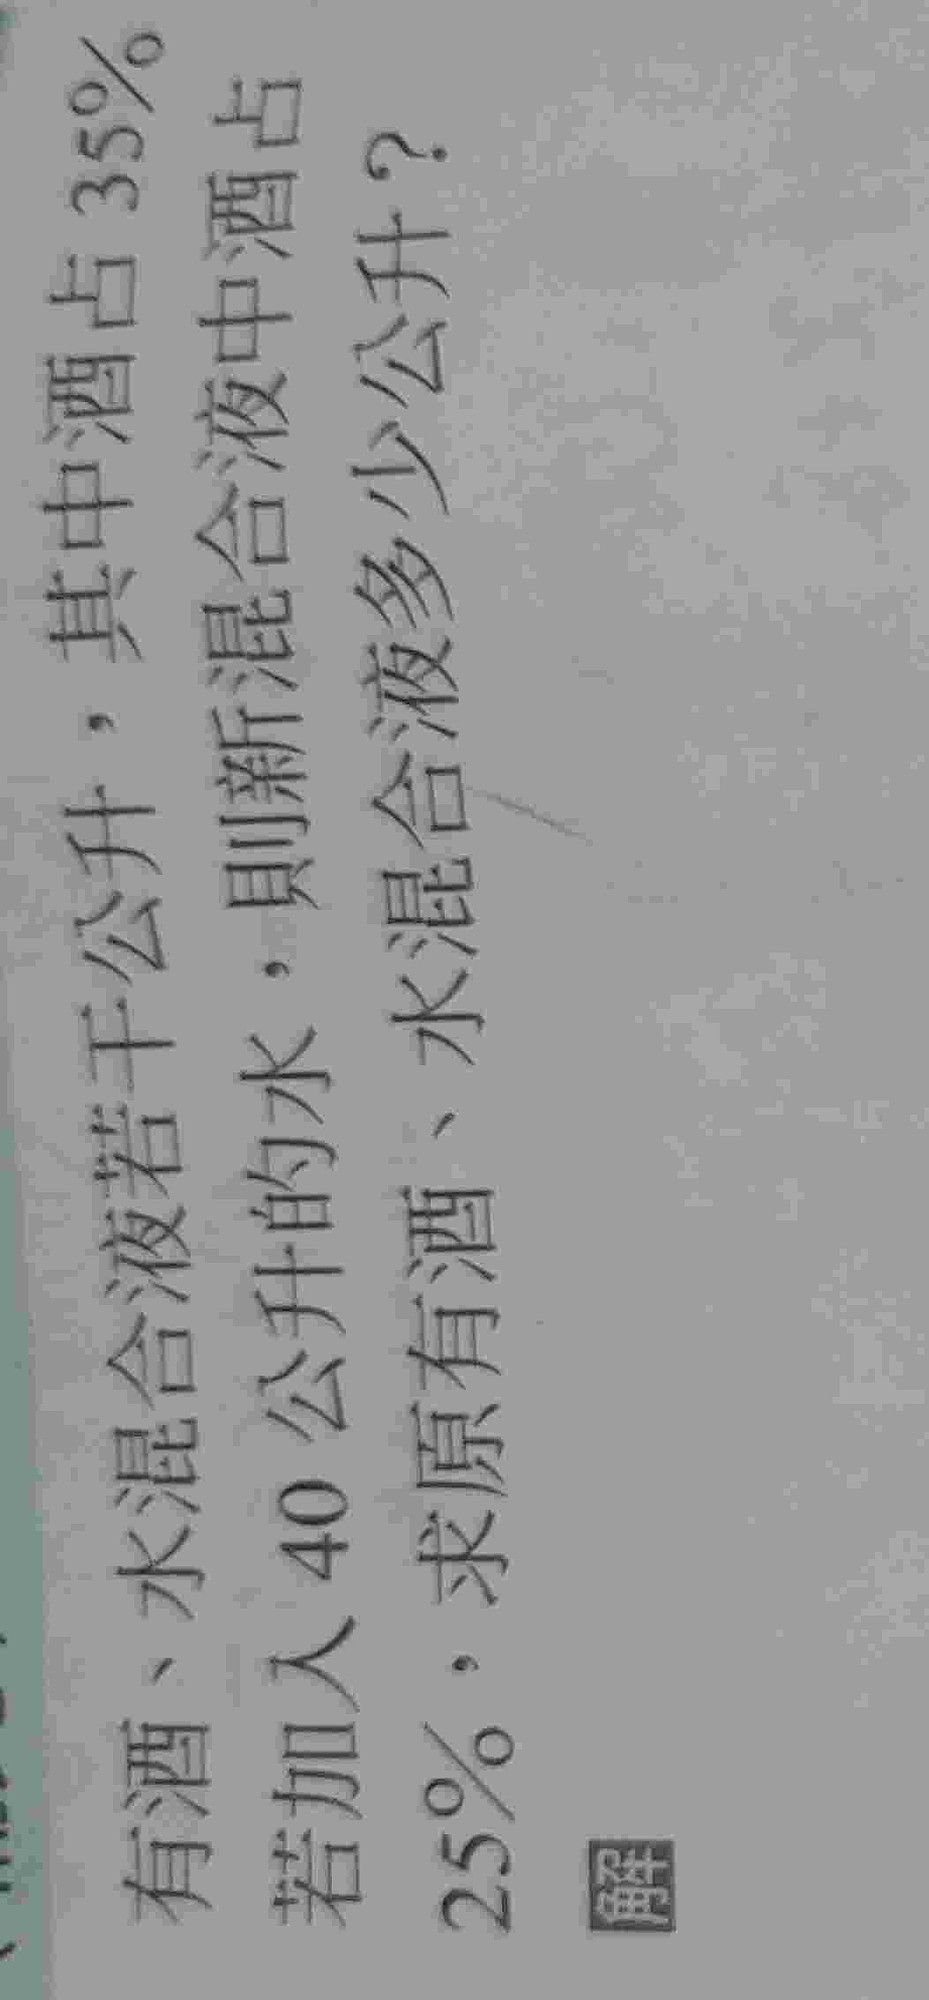 有酒、水混合液若干公升，其中酒占 35%
若加入 40 公升的水，則新混合液中酒占
25%，求原有酒、水混合液多少公升？
解